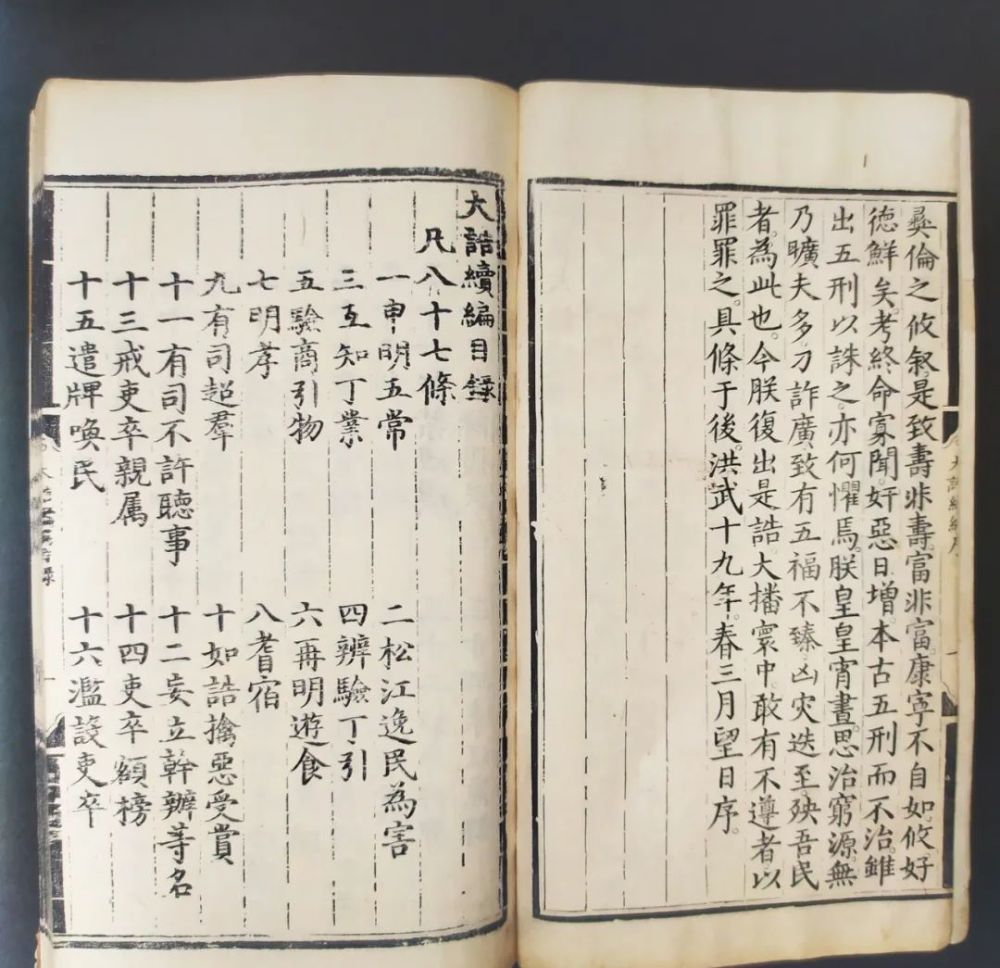 彞倫之攸敘是致壽非壽富非富康寧不自如攸好
德鮮矣考終命寡聞奸惡日增本古五刑而不治雖
出五刑以誅之亦何懼焉朕皇皇宵晝思治窮源無
乃曠夫多刁詐廣致有五福不臻凶灾迭至殃吾民
者為此也今朕復出是誥大播寰中敢有不遵者以
罪罪之具條于後洪武十九年春三月望日序
大誥續編序
大誥續編目錄
凡八十七條
一申明五常 二松江逸民為害
三互知丁業 四辨驗丁引
五驗商引物 六再明遊食
七明孝 八耆宿
九有司超羣 十如誥擒惡受賞
十一有司不許聽事 十二妄立幹辦等名
十三戒吏卒親属 十四吏卒額榜
十五遣牌喚民 十六濫設吏卒